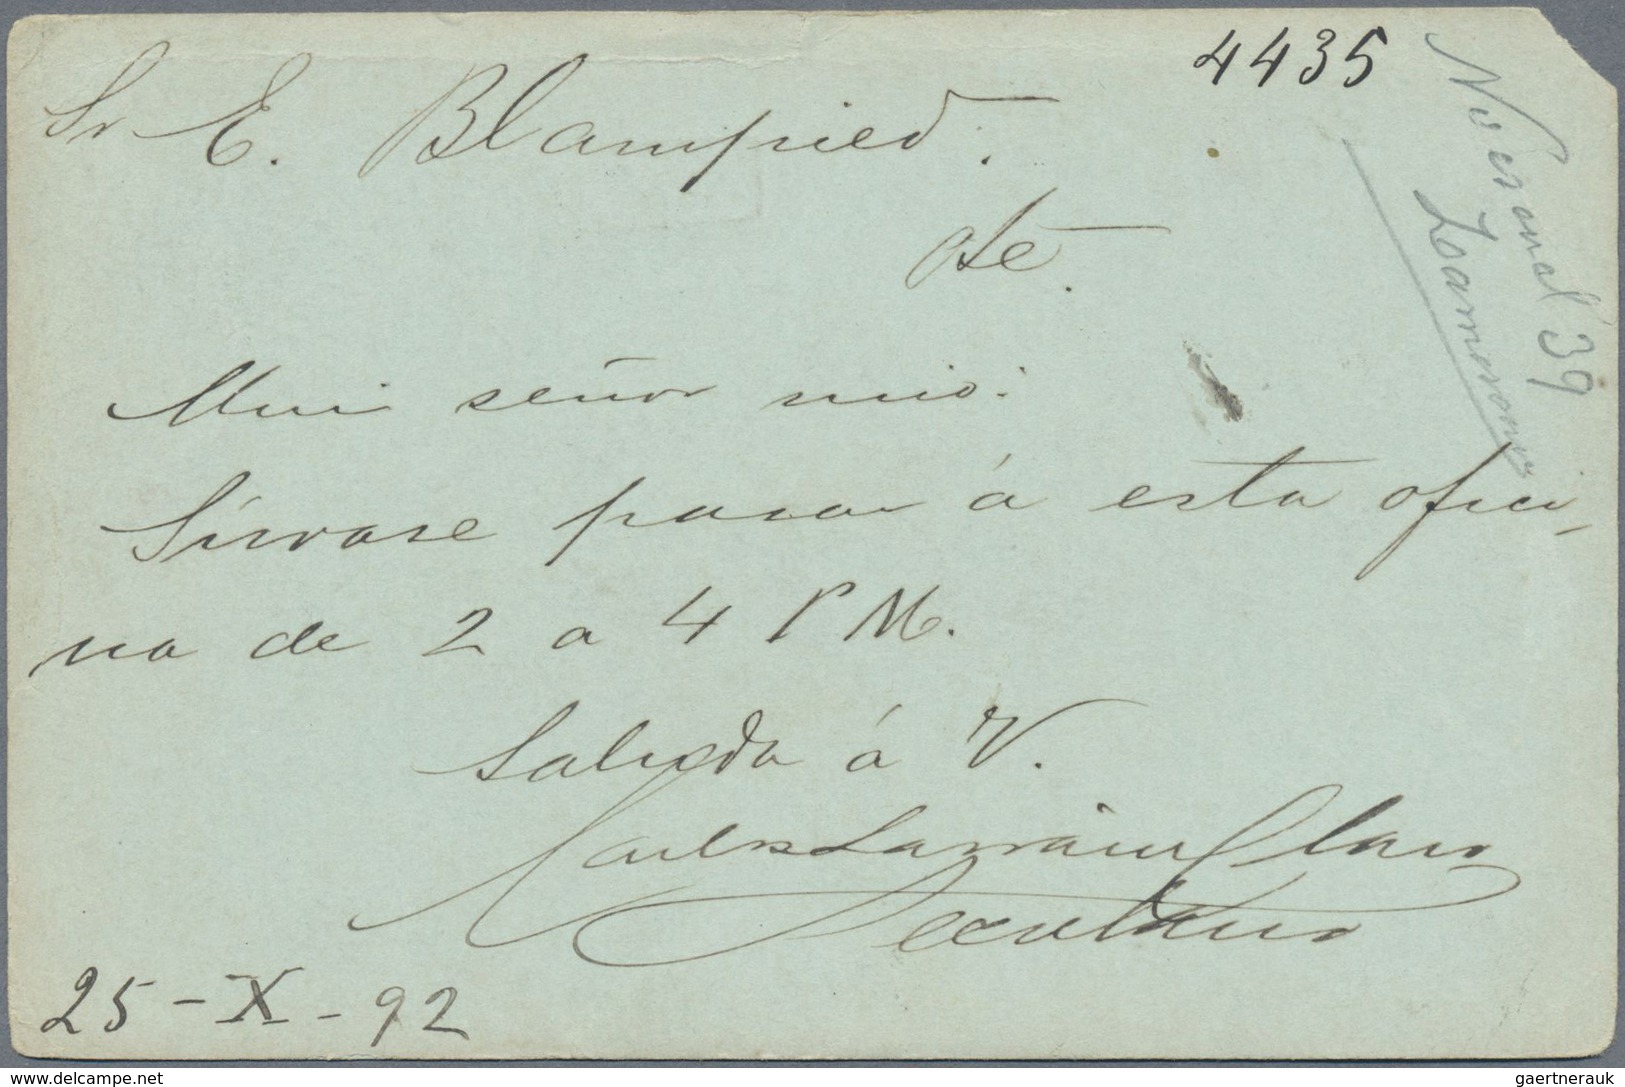 4435
Sr E. Blampied.
Pte.
No es anual 39
Zamorano
Mui señor mio:
Sírvase pasar á esta ofici-
na de 2 a 4 P M.
Saluda á V.
Carlos Larrain Claro
Secretario
25-X-92
www.delcampe.net
gaertnerauk